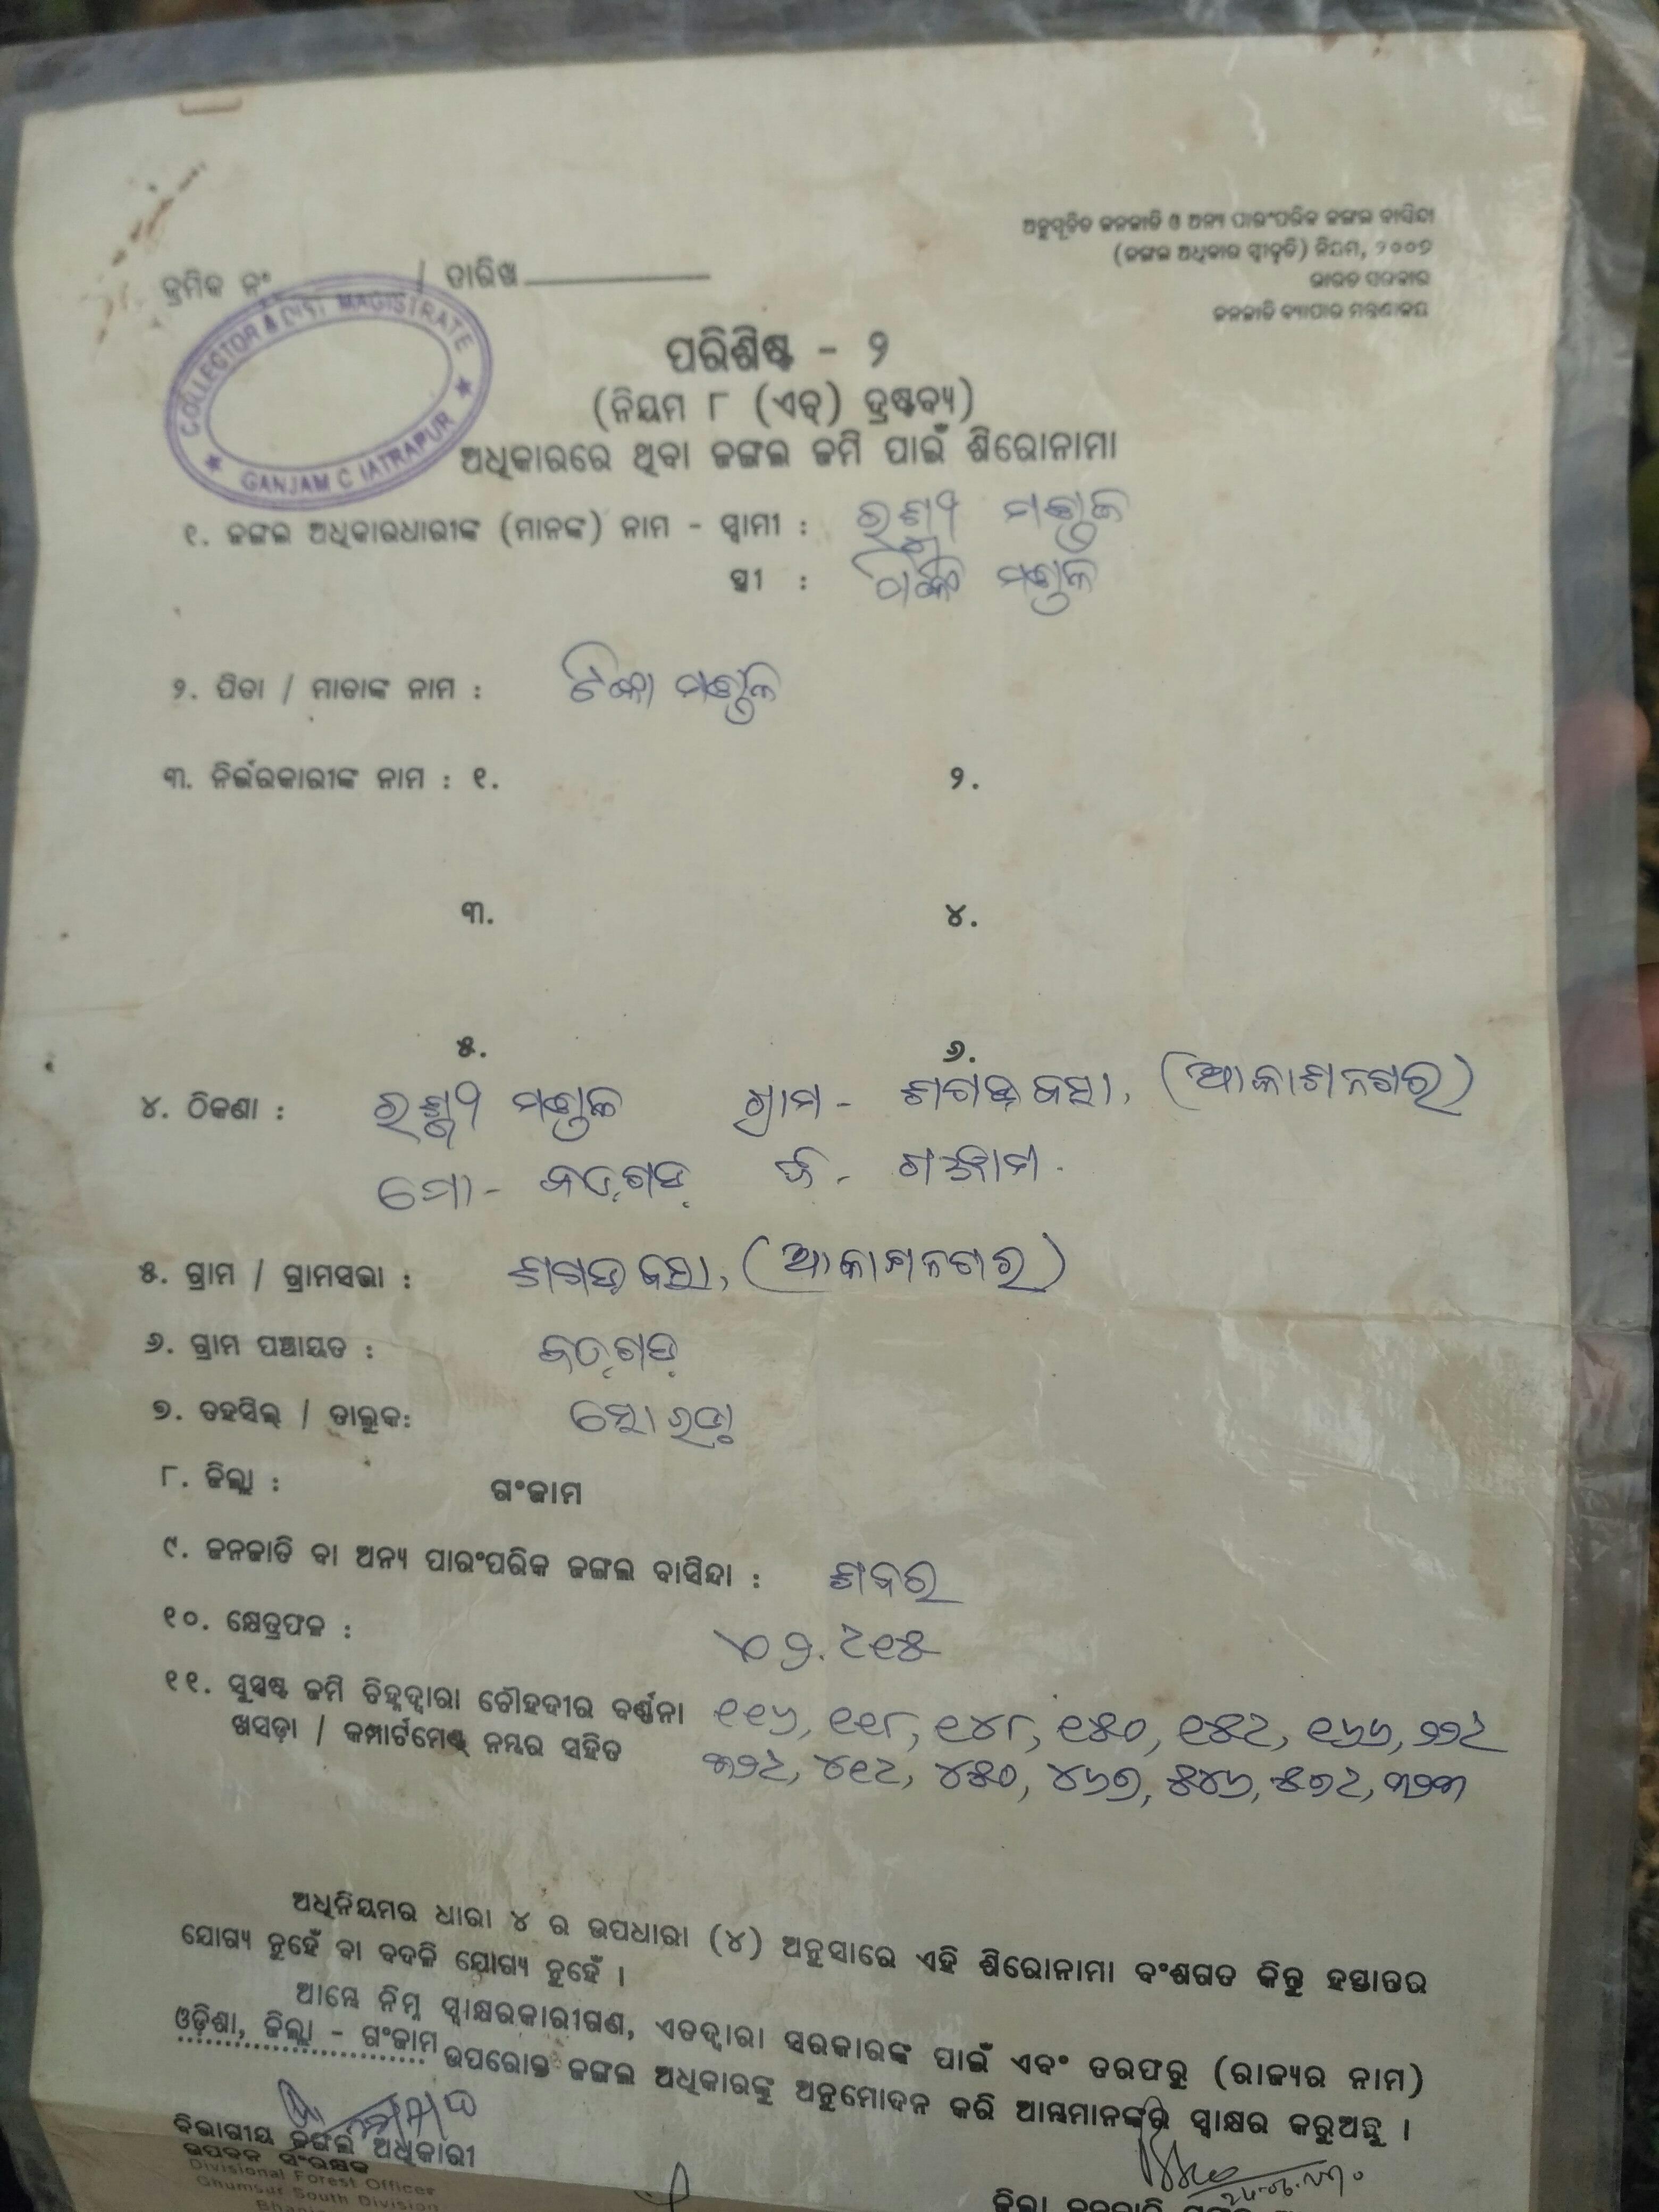 ଅନୁସୂଚିତ ଜନଜାତି ଓ ଅନ୍ୟ ପାରଂପରିକ ଜଙ୍ଗଲ ବାସିନ୍ଦା
(ଜଙ୍ଗଲ ଅଧିକାର ସ୍ୱୀକୃତି) ନିୟମ, ୨୦୦୭
ଭାରତ ସରକାର
ଜନଜାତି ବ୍ୟାପାର ମନ୍ତ୍ରଣାଳୟ
କ୍ରମିକ ନଂ / ତାରିଖ
COLLECTOR & DIST MAGISTRATE
GANJAM CHATRAPUR
ପରିଶିଷ୍ଟ - ୨
(ନିୟମ ୮ (ଏଚ୍) ଦ୍ରଷ୍ଟବ୍ୟ)
ଅଧିକାରରେ ଥିବା ଜଙ୍ଗଲ ଜମି ପାଇଁ ଶିରୋନାମା
୧. ଜଙ୍ଗଲ ଅଧିକାରଧାରୀଙ୍କ (ମାନଙ୍କ) ନାମ - ସ୍ୱାମୀ :
ସ୍ତ୍ରୀ :
୨. ପିତା / ମାତାଙ୍କ ନାମ :
୩. ନିର୍ଭରକାରୀଙ୍କ ନାମ : ୧. ୨.
୩. ୪.
୫. ୬.
୪. ଠିକଣା : ଗ୍ରାମ - (ଆକାଶନଗର)
ପୋ - ବଡ଼ଗଡ଼ ଜି - ଗଞ୍ଜାମ
୫. ଗ୍ରାମ / ଗ୍ରାମସଭା : (ଆକାଶନଗର)
୬. ଗ୍ରାମ ପଞ୍ଚାୟତ : ବଡ଼ଗଡ଼
୭. ତହସିଲ୍ / ତାଲୁକ: ସୋରଡ଼ା
୮. ଜିଲ୍ଲା : ଗଂଜାମ
୯. ଜନଜାତି ବା ଅନ୍ୟ ପାରଂପରିକ ଜଙ୍ଗଲ ବାସିନ୍ଦା : ଶବର
୧୦. କ୍ଷେତ୍ରଫଳ :
୧୧. ସୁସ୍ପଷ୍ଟ ଜମି ଚିହ୍ନଦ୍ୱାରା ଚୌହଦୀର ବର୍ଣ୍ଣନା ୧୧୬, ୧୧୮, ୧୪୮, ୧୫୦, ୧୫୯, ୧୬୬, ୨୨୯
ଖସଡ଼ା / କମ୍ପାର୍ଟମେଣ୍ଟ ନମ୍ବର ସହିତ ୩୨୯, ୪୧୯, ୪୫୦, ୪୬୭, ୫୪୬, ୫୭୯, ୩୨୩
ଅଧିନିୟମର ଧାରା ୪ ର ଉପଧାରା (୪) ଅନୁସାରେ ଏହି ଶିରୋନାମା ବଂଶଗତ କିନ୍ତୁ ହସ୍ତାନ୍ତର
ଯୋଗ୍ୟ ନୁହେଁ ବା ବଦଳି ଯୋଗ୍ୟ ନୁହେଁ ।
ଆମ୍ଭେ ନିମ୍ନ ସ୍ୱାକ୍ଷରକାରୀଗଣ, ଏତଦ୍ୱାରା ସରକାରଙ୍କ ପାଇଁ ଏବଂ ତରଫରୁ (ରାଜ୍ୟର ନାମ)
ଓଡ଼ିଶା, ଜିଲ୍ଲା - ଗଂଜାମ ଉପରୋକ୍ତ ଜଙ୍ଗଲ ଅଧିକାରଙ୍କୁ ଅନୁମୋଦନ କରି ଆମ୍ଭମାନଙ୍କର ସ୍ୱାକ୍ଷର କରୁଅଛୁ ।
ବିଭାଗୀୟ ଜଙ୍ଗଲ ଅଧିକାରୀ
ଉପବନ ସଂରକ୍ଷକ
Divisional Forest Officer
Ghumsur South Division